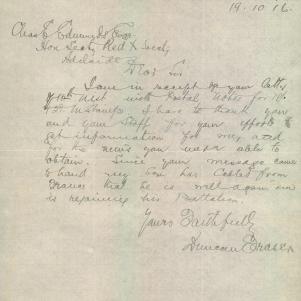 19.10.16.
Chas E Edmunds Esq
Hon Secty Red X Socty
Adelaide
Dear Sir
I am in receipt of your letter
of 10th inst with Postal Notes for
I have to thank you
and your Staff for your efforts to
get information for me and
for the news you were able to
obtain. Since your message came
to hand my boy has Cabled from
France that he is well again and
is rejoining his Battalion.
Yours Faithfully
Duncan Fraser